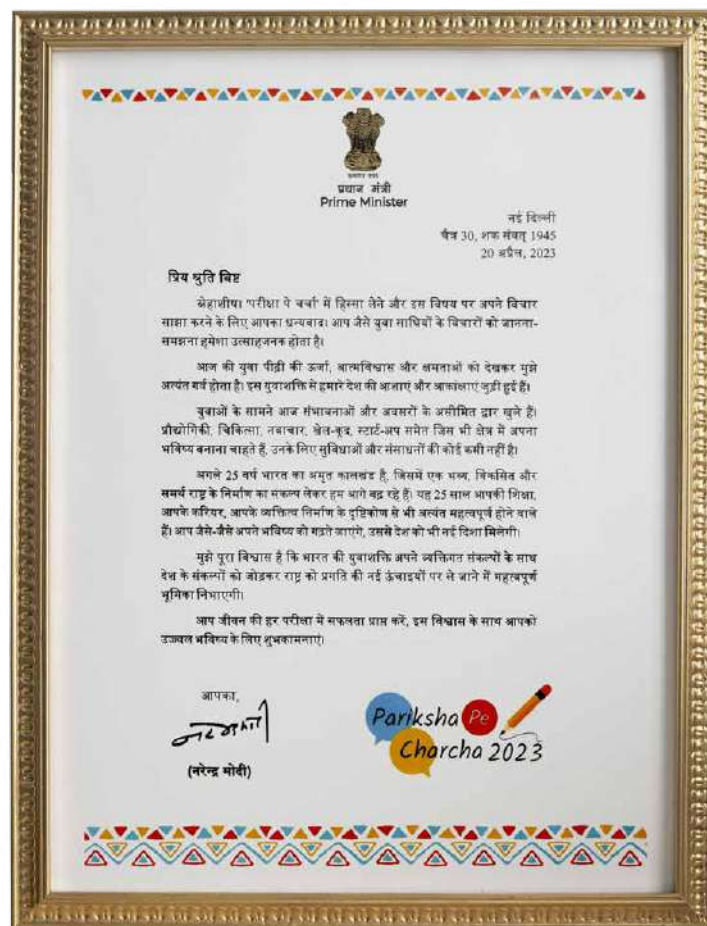 प्रधान मंत्री
Prime Minister
नई दिल्ली
चैत्र 30, शक संवत् 1945
20 अप्रैल, 2023
प्रिय श्रुति बिष्ट
स्नेहाशीष। 'परीक्षा पे चर्चा' में हिस्सा लेने और इस विषय पर अपने विचार
साझा करने के लिए आपका धन्यवाद। आप जैसे युवा साथियों के विचारों को जानना-
समझना हमेशा उत्साहजनक होता है।
आज की युवा पीढ़ी की ऊर्जा, आत्मविश्वास और क्षमताओं को देखकर मुझे
अत्यंत गर्व होता है। इस युवाशक्ति से हमारे देश की आशाएं और आकांक्षाएं जुड़ी हुई हैं।
युवाओं के सामने आज संभावनाओं और अवसरों के असीमित द्वार खुले हैं।
प्रौद्योगिकी, चिकित्सा, नवाचार, खेल-कूद, स्टार्ट-अप समेत जिस भी क्षेत्र में अपना
भविष्य बनाना चाहते हैं, उनके लिए सुविधाओं और संसाधनों की कोई कमी नहीं है।
अगले 25 वर्ष भारत का अमृत कालखंड है, जिसमें एक भव्य, विकसित और
समर्थ राष्ट्र के निर्माण का संकल्प लेकर हम आगे बढ़ रहे हैं। यह 25 साल आपकी शिक्षा,
आपके करियर, आपके व्यक्तित्व निर्माण के दृष्टिकोण से भी अत्यंत महत्वपूर्ण होने वाले
हैं। आप जैसे-जैसे अपने भविष्य को गढ़ते जाएंगे, उससे देश को भी नई दिशा मिलेगी।
मुझे पूरा विश्वास है कि भारत की युवाशक्ति अपने व्यक्तिगत संकल्पों के साथ
देश के संकल्पों को जोड़कर राष्ट्र को प्रगति की नई ऊंचाइयों पर ले जाने में महत्वपूर्ण
भूमिका निभाएगी।
आप जीवन की हर परीक्षा में सफलता प्राप्त करें, इस विश्वास के साथ आपको
उज्ज्वल भविष्य के लिए शुभकामनाएं।
आपका,
(नरेन्द्र मोदी)
Pariksha Pe
Charcha 2023